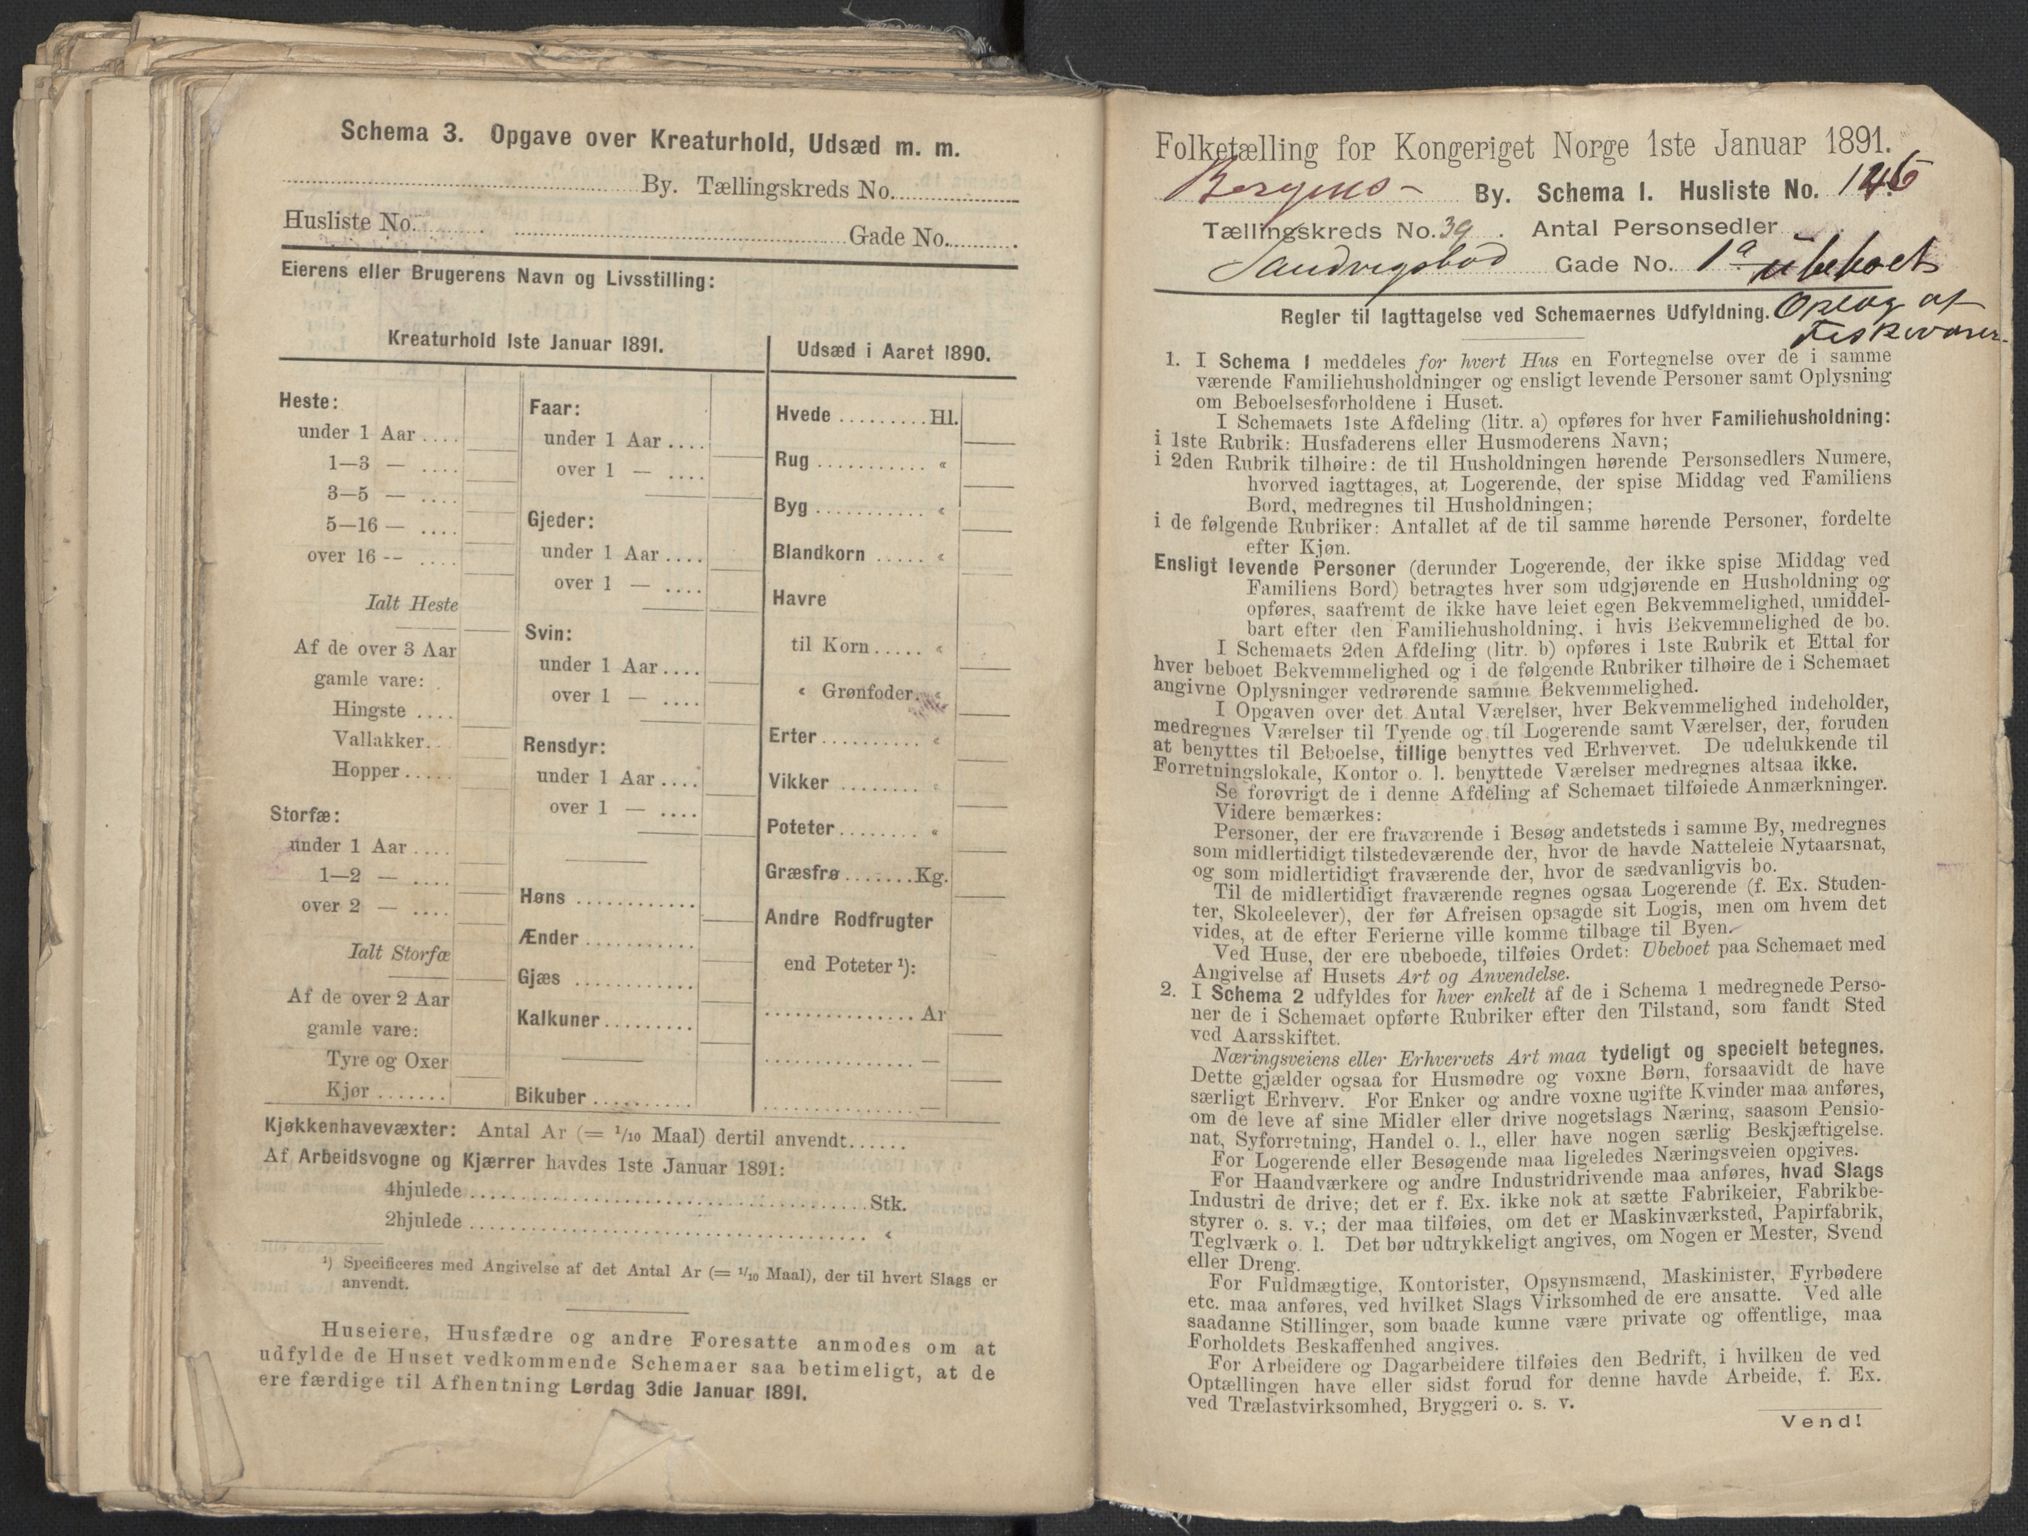 Schema 3. Opgave over Kreaturhold, Udsæd m. m.
By. Tællingskreds No.
Husliste No. Gade No.
Eierens eller Brugerens Navn og Livsstilling:
Kreaturhold 1ste Januar 1891.
Heste:
under 1 Aar ....
1—3 — ....
3—5 — ....
5—16 — ....
over 16 -- ....
Ialt Heste
Af de over 3 Aar
gamle vare:
Hingste ....
Vallakker..
Hopper .....
Storfæ:
under 1 Aar ....
1—2 — ....
over 2 — ....
Ialt Storfæ
Af de over 2 Aar
gamle vare:
Tyre og Oxer
Kjør .......
Faar:
under 1 Aar ....
over 1 — ....
Gjeder:
under 1 Aar ....
over 1 — ....
Svin:
under 1 Aar ....
over 1 — ....
Rensdyr:
under 1 Aar ....
over 1 — ....
Høns ............
Ænder ...........
Gjæs ............
Kalkuner.........
Bikuber ..........
Udsæd i Aaret 1890.
Hvede ......... Hl.
Rug ........... «
Byg ........... «
Blandkorn ..... «
Havre
til Korn ..... «
« Grønfoder. «
Erter.......... «
Vikker ........ «
Poteter........ «
Græsfrø .......Kg.
Andre Rodfrugter
end Poteter ¹):
............... Ar
............... —
............... —
Kjøkkenhavevæxter: Antal Ar (= 1/10 Maal) dertil anvendt......
Af Arbeidsvogne og Kjærrer havdes 1ste Januar 1891:
4hjulede ........................................ Stk.
2hjulede ........................................ «
¹) Specificeres med Angivelse af det Antal Ar (= 1/10 Maal), der til hvert Slags er
anvendt.
Huseiere, Husfædre og andre Foresatte anmodes om at
udfylde de Huset vedkommende Schemaer saa betimeligt, at de
ere færdige til Afhentning Lørdag 3die Januar 1891.
Folketælling for Kongeriget Norge 1ste Januar 1891.
Bergens By. Schema 1. Husliste No. 146
Tællingskreds No. 39. Antal Personsedler
Sandvigsbod Gade No. 1a ubeboet
Regler til Iagttagelse ved Schemaernes Udfyldning. Oplag af
Fiskevarer
1. I Schema 1 meddeles for hvert Hus en Fortegnelse over de i samme
værende Familiehusholdninger og ensligt levende Personer samt Oplysning
om Beboelsesforholdene i Huset.
I Schemaets 1ste Afdeling (litr. a) opføres for hver Familiehusholdning:
i 1ste Rubrik: Husfaderens eller Husmoderens Navn;
i 2den Rubrik tilhøire: de til Husholdningen hørende Personsedlers Numere,
hvorved iagttages, at Logerende, der spise Middag ved Familiens
Bord, medregnes til Husholdningen;
i de følgende Rubriker: Antallet af de til samme hørende Personer, fordelte
efter Kjøn.
Ensligt levende Personer (derunder Logerende, der ikke spise Middag ved
Familiens Bord) betragtes hver som udgjørende en Husholdning og
opføres, saafremt de ikke have leiet egen Bekvemmelighed, umiddel-
bart efter den Familiehusholdning, i hvis Bekvemmelighed de bo.
I Schemaets 2den Afdeling (litr. b) opføres i 1ste Rubrik et Ettal for
hver beboet Bekvemmelighed og i de følgende Rubriker tilhøire de i Schemaet
angivne Oplysninger vedrørende samme Bekvemmelighed.
I Opgaven over det Antal Værelser, hver Bekvemmelighed indeholder,
medregnes Værelser til Tyende og til Logerende samt Værelser, der, foruden
at benyttes til Beboelse, tillige benyttes ved Erhvervet. De udelukkende til
Forretningslokale, Kontor o. l. benyttede Værelser medregnes altsaa ikke.
Se forøvrigt de i denne Afdeling af Schemaet tilføiede Anmærkninger.
Videre bemærkes:
Personer, der ere fraværende i Besøg andetsteds i samme By, medregnes
som midlertidigt tilstedeværende der, hvor de havde Natteleie Nytaarsnat,
og som midlertidigt fraværende der, hvor de sædvanligvis bo.
Til de midlertidigt fraværende regnes ogsaa Logerende (f. Ex. Studen-
ter, Skoleelever), der før Afreisen opsagde sit Logis, men om hvem det
vides, at de efter Ferierne ville komme tilbage til Byen.
Ved Huse, der ere ubeboede, tilføies Ordet: Ubeboet paa Schemaet med
Angivelse af Husets Art og Anvendelse.
2. I Schema 2 udfyldes for hver enkelt af de i Schema 1 medregnede Perso-
ner de i Schemaet opførte Rubriker efter den Tilstand, som fandt Sted
ved Aarsskiftet.
Næringsveiens eller Erhvervets Art maa tydeligt og specielt betegnes.
Dette gjælder ogsaa for Husmødre og voxne Børn, forsaavidt de have
særligt Erhverv. For Enker og andre voxne ugifte Kvinder maa anføres,
om de leve af sine Midler eller drive nogetslags Næring, saasom Pensio-
nat, Syforretning, Handel o. l., eller have nogen særlig Beskjæftigelse.
For Logerende eller Besøgende maa ligeledes Næringsveien opgives.
For Haandværkere og andre Industridrivende maa anføres, hvad Slags
Industri de drive; det er f. Ex. ikke nok at sætte Fabrikeier, Fabrikbe-
styrer o. s. v.; der maa tilføies, om det er Maskinværksted, Papirfabrik,
Teglværk o. l. Det bør udtrykkeligt angives, om Nogen er Mester, Svend
eller Dreng.
For Fuldmægtige, Kontorister, Opsynsmænd, Maskinister, Fyrbødere
etc. maa anføres, ved hvilket Slags Virksomhed de ere ansatte. Ved alle
saadanne Stillinger, som baade kunne være private og offentlige, maa
Forholdets Beskaffenhed angives.
For Arbeidere og Dagarbeidere tilføies den Bedrift, i hvilken de ved
Optællingen have eller sidst forud for denne havde Arbeide, f. Ex.
ved Trælastvirksomhed, Bryggeri o. s. v.
Vend!